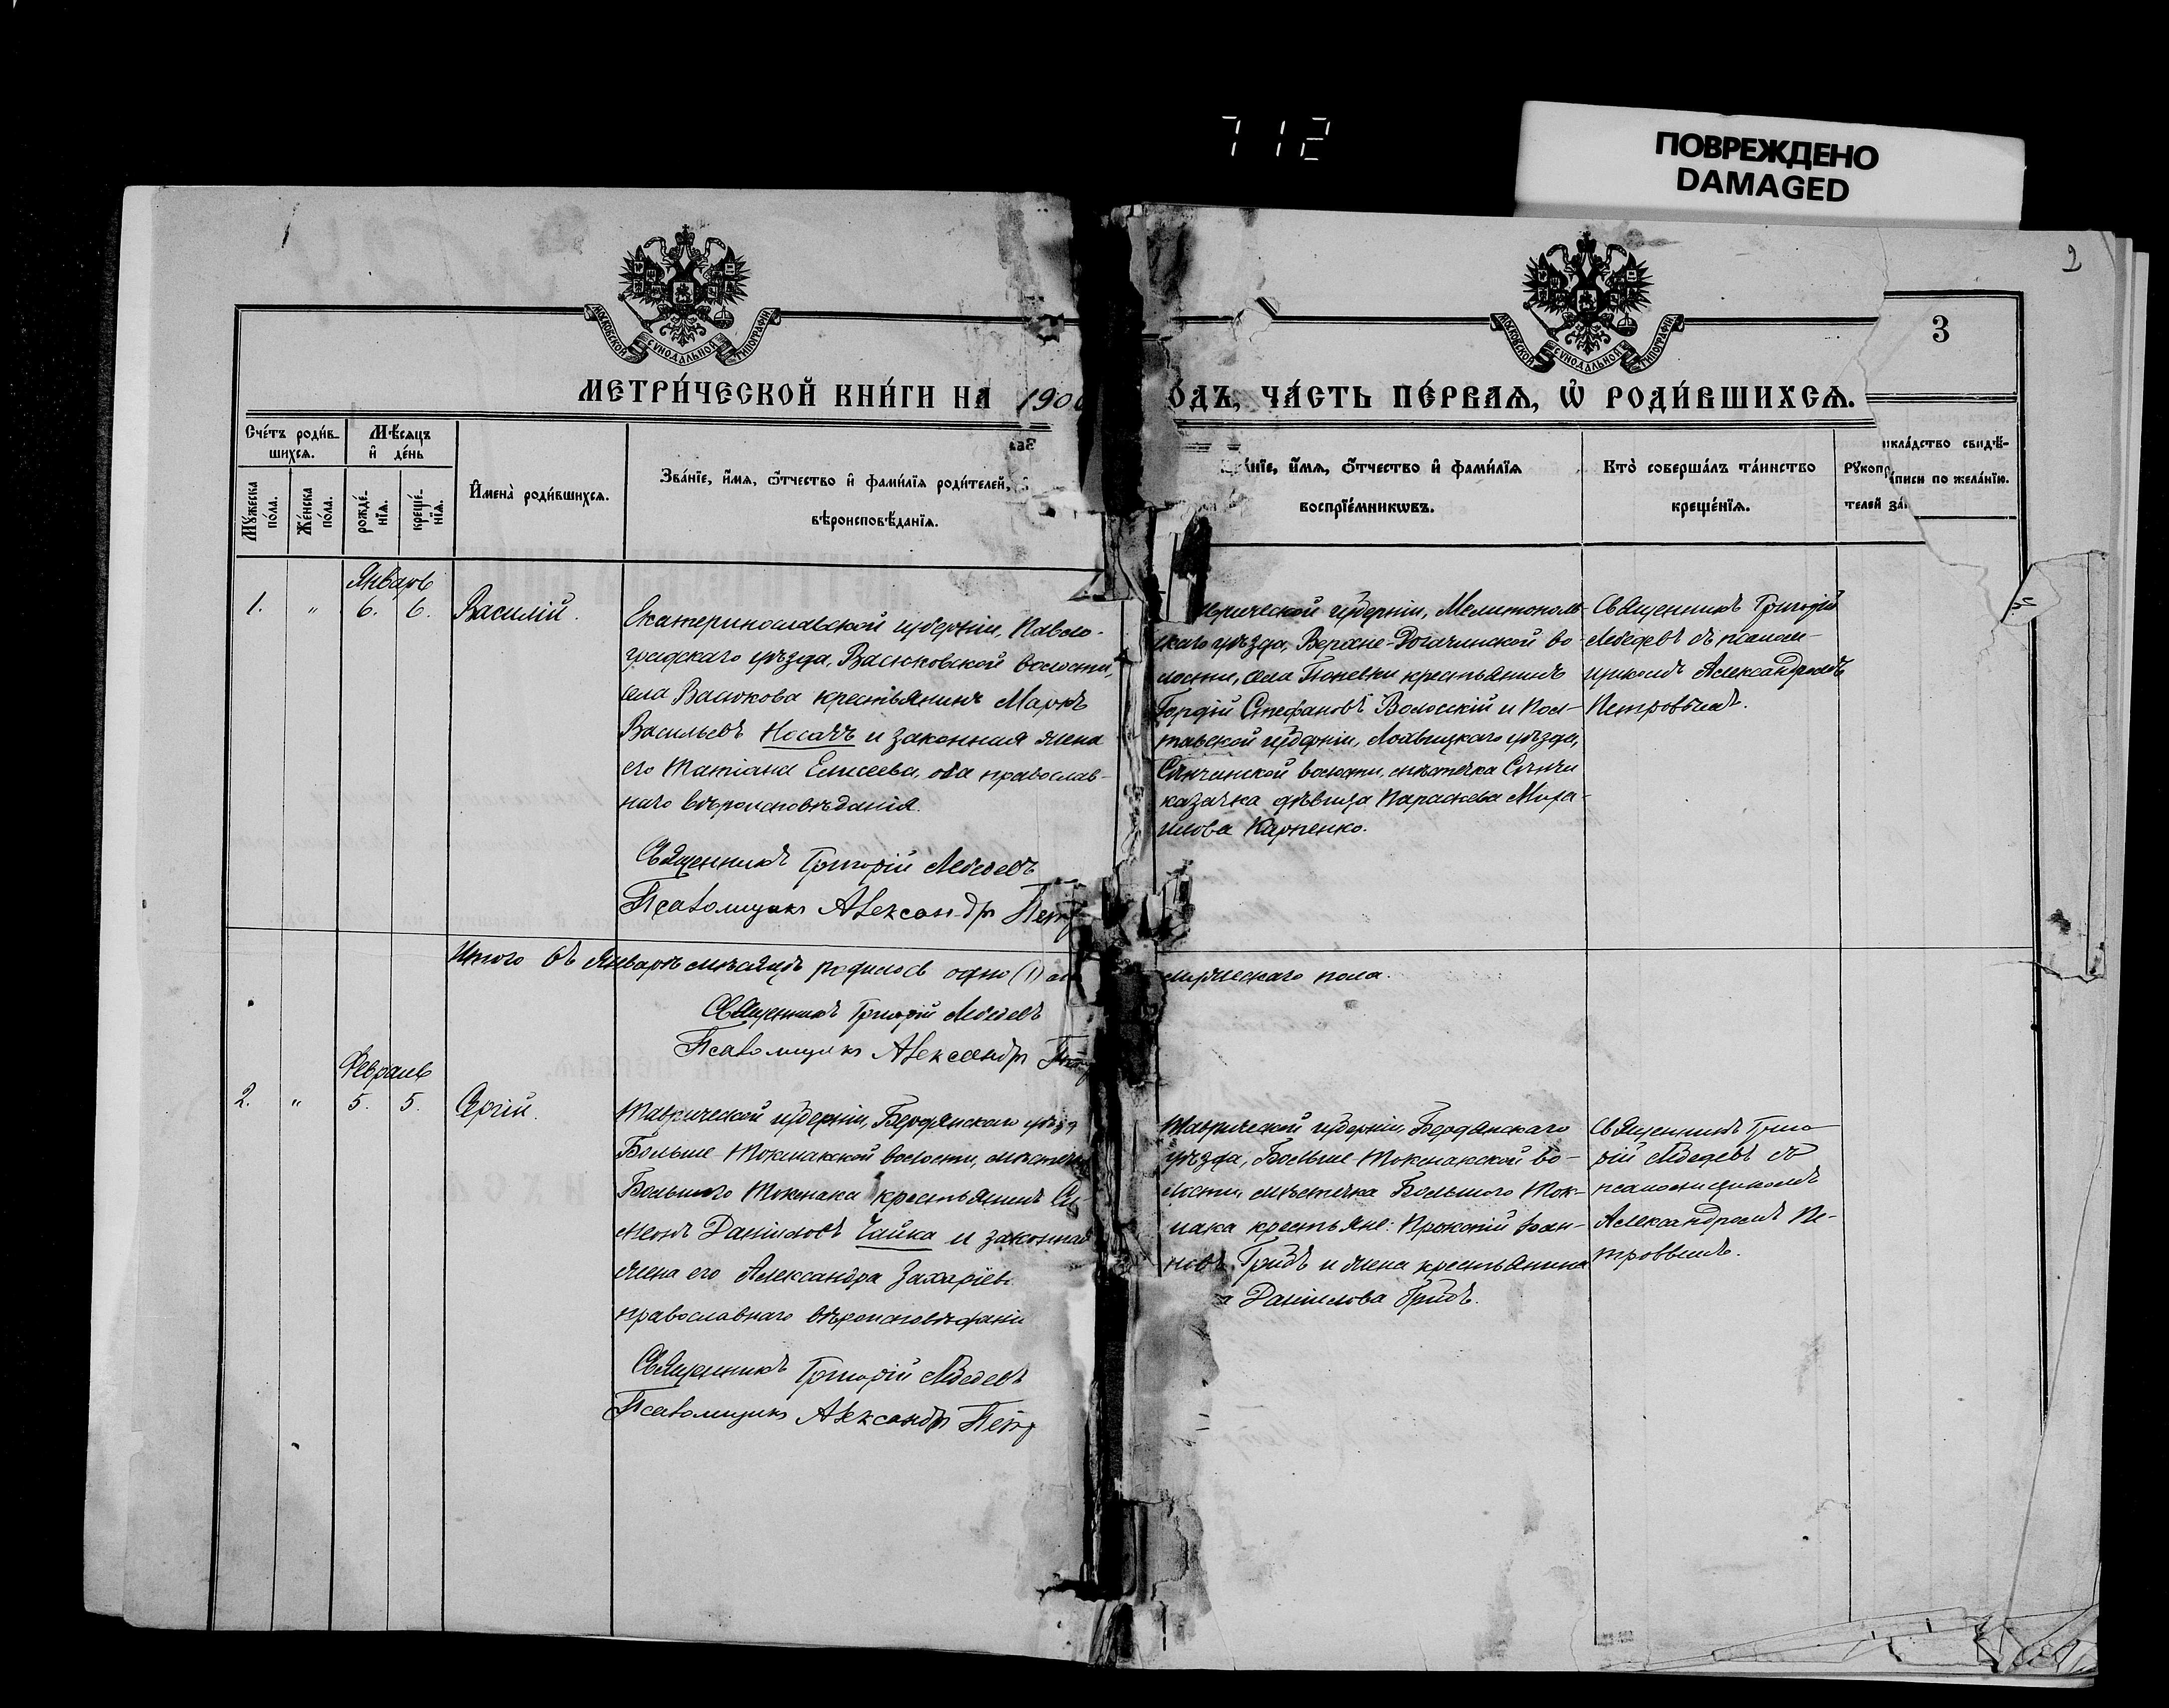 712
ПОВРЕЖДЕНО
DAMAGED
2
МОСКОВСКОЙ СѴНОДАЛЬНОЙ ТИПОГРАФІИ
МОСКОВСКОЙ СѴНОДАЛЬНОЙ ТИПОГРАФІИ
3
МЕТРИ́ЧЕСКОЙ КНИ́ГИ НА 190
ОДЪ, ЧА́СТЬ ПЕ́РВАѦ, Ѡ҆ РОДИ́ВШИХСѦ.
Сче́тъ роди́в-
шихсѧ.
Мѣ́сѧцъ
и҆ де́нь
Мꙋ́жеска
по́ла.
Же́нска
по́ла.
рожде́-
нїѧ.
креще́-
нїѧ.
И҆мена̀ роди́вшихсѧ.
Зва́нїе, и҆́мѧ, ѻ҆́тчество и҆ фами́лїѧ роди́телей,
вѣроисповѣ́данїѧ.
а́нїе, и҆́мѧ, ѻ҆́тчество и҆ фами́лїѧ
воспрїе́мникѡвъ.
Кто̀ соверша́лъ та́инство
креще́нїѧ.
Рꙋкопр
икла́дство свидѣ́-
телей за́
писи по жела́нїю.
Январь
1. " 6. 6. Василій.
Екатеринославской губерніи, Павло-
градскаго уѣзда, Васюковской волости,
села Васюкова крестьянинъ Маркъ
Васильевъ Носачъ и законная жена
его Татіана Елисеева, оба православ-
наго вѣроисповѣданія.
Священникъ Григорій Лебедевъ
Псаломщикъ Александръ Петр
врической губерніи, Мелитополь-
скаго уѣзда, Верхне-Рогачинской во
лости, села крестьянинъ
Гордій Стефановъ Волосскій и Пол-
тавской губерніи, Лохвицкаго уѣзда,
Сѣнчанской волости, мѣстечка Сѣнчи
казачка дѣвица Параскева Миха-
илова Карпенко.
Священникъ Григорій
Лебедевъ съ псалом-
щикомъ Александромъ
Петровымъ.
Итого въ Январѣ мѣсяцѣ родилось одно (1)
мужескаго пола.
Священникъ Григорій Лебедевъ
Псаломщикъ Александръ
Февраль
2. " 5. 5. Сергій.
Таврической губерніи, Бердянскаго уѣзда
Больше-Токмакской волости, мѣстечка
Большого Токмака крестьянинъ Си
меонъ Даніиловъ Чайка и законная
жена его Александра Захаріев
православнаго вѣроисповѣдані
Священникъ Григорій Лебедевъ
Псаломщикъ Александръ Петр
Таврической губерніи Бердянскаго
уѣзда, Больше Токмакской во-
лости, мѣстечка Большого Ток-
мака крестьяне: Прокопій Іоан-
новъ Гридъ и жена крестьянина
а Даніилова Гридъ.
Священникъ Григо-
рій Лебедевъ съ
псаломщикомъ
Александромъ Пе-
тровымъ.